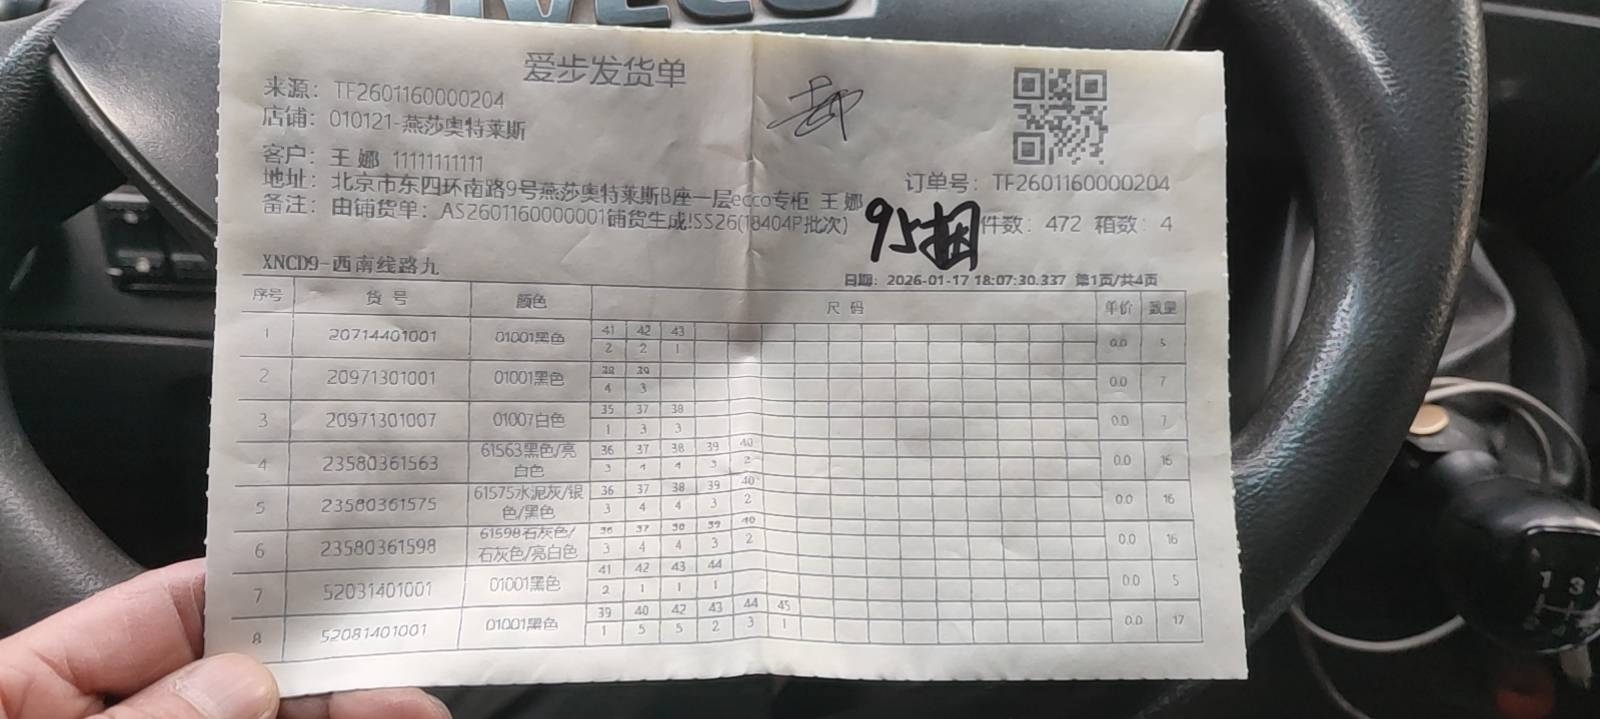 IVECO
爱步发货单
来源: TF2601160000204
店铺: 010121-燕莎奥特莱斯
客户: 王 娜 11111111111
地址: 北京市东四环南路9号燕莎奥特莱斯B座一层ecco专柜 王 娜
订单号: TF2601160000204
备注: 由铺货单: AS2601160000001铺货生成!SS26(18404P批次)
95捆
件数: 472 箱数: 4
XNCD9-西南线路九
日期: 2026-01-17 18:07:30.337 第1页/共4页
序号 货 号 颜色 尺 码 单价 数量
1 20714401001 01001黑色 41 42 43 0.0 5
2 2 1
2 20971301001 01001黑色 38 39 0.0 7
4 3
3 20971301007 01007白色 35 37 38 0.0 7
1 3 3
4 23580361563 61563黑色/亮白色 36 37 38 39 40 0.0 16
3 4 4 3 2
5 23580361575 61575水泥灰/银色/黑色 36 37 38 39 40 0.0 16
3 4 4 3 2
6 23580361598 61598石灰色/石灰色/亮白色 36 37 38 39 40 0.0 16
3 4 4 3 2
7 52031401001 01001黑色 41 42 43 44 0.0 5
2 1 1 1
8 52081401001 01001黑色 39 40 42 43 44 45 0.0 17
1 5 5 2 3 1
1 3